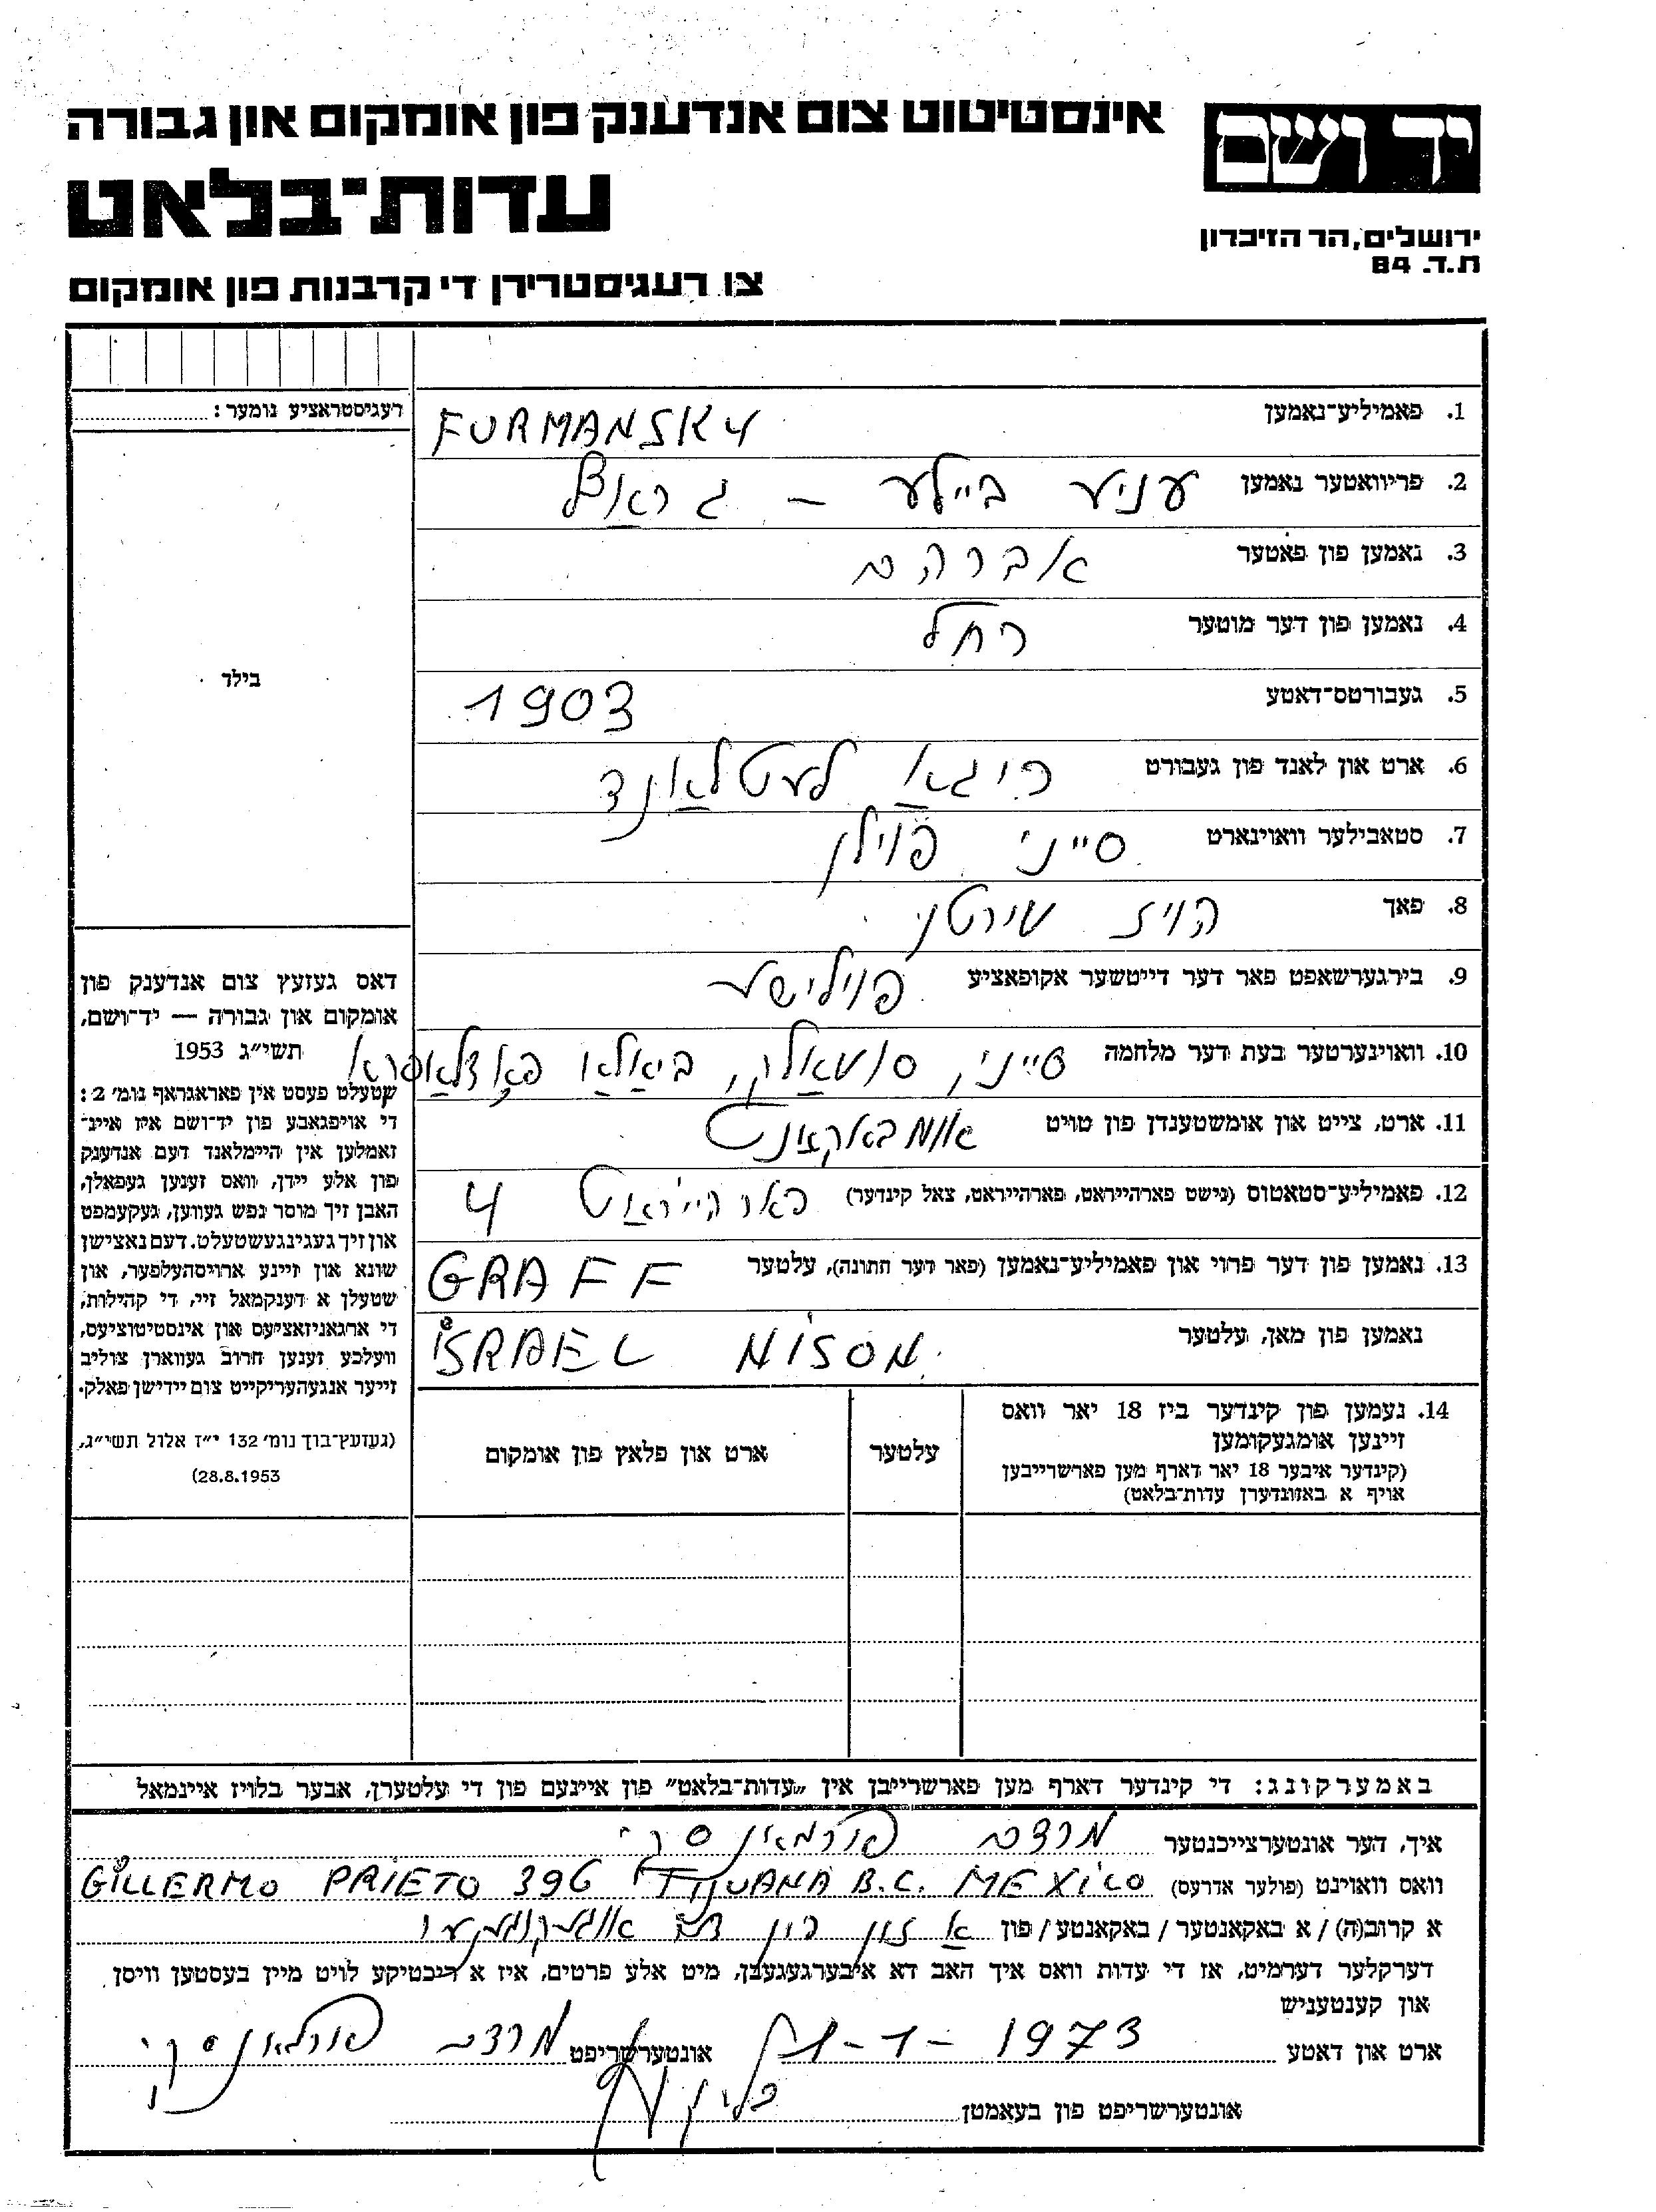 יד ושם
אינסטיטוט צום אנדענק פון אומקום און גבורה
עדות־בלאט
ירושלים, הר הזיכרון
ת.ד. 84
צו רעגיסטרירן די קרבנות פון אומקום
רעגיסטראציע נומער:
1. פאמיליע־נאמען FURMANSKY
2. פריוואטער נאמען עניע ביילע – גראף
3. נאמען פון פאטער אברהם
4. נאמען פון דער מוטער רחל
בילד
5. געבורטס־דאטע 1903
6. ארט און לאנד פון געבורט ריגאַ לעטלאַנד
7. סטאבילער וואוינארט סייני פוילן
8. פאך הויז
9. בירגערשאפט פאר דער דייטשער אקופאציע פוילישע
10. וואוינערטער בעת דער מלחמה סייני,
11. ארט, צייט און אומשטענדן פון טויט אומבאקאנט
12. פאמיליע־סטאטוס (נישט פארהייראט, פארהייראט, צאל קינדער) פארהייראַט 4
13. נאמען פון דער פרוי און פאמיליע־נאמען (פאר דער חתונה), עלטער GRAFF
נאמען פון מאן, עלטער ISRAEL NISON
14. נעמען פון קינדער ביז 18 יאר וואס
זיינען אומגעקומען
(קינדער איבער 18 יאר דארף מען פארשרייבן
אויף א באזונדערן עדות־בלאט)
עלטער
ארט און פלאץ פון אומקום
דאס געזעץ צום אנדענק פון
אומקום און גבורה — יד־ושם,
תשי״ג 1953
שטעלט פעסט אין פאראגראף נומ׳ 2:
די אויפגאבע פון יד־ושם איז איינ־
זאמלען אין היימלאנד דעם אנדענק
פון אלע יידן, וואס זענען געפאלן,
האבן זיך מוסר נפש געווען, געקעמפט
און זיך געגינגעשטעלט. דעם נאצישן
שונא און זיינע ארויסהעלפער, און
שטעלן א דענקמאל זיי, די קהילות,
די ארגאניזאציעס און אינסטיטוציעס,
וועלכע זענען חרוב געווארן צוליב
זייער אנגעהעריקייט צום יידישן פאלק.
(געזעץ־בוך נומ׳ 132 י״ז אלול תשי״ג,
28.8.1953)
באמערקונג: די קינדער דארף מען פארשרייבן אין „עדות־בלאט״ פון איינעם פון די עלטערן, אבער בלויז איינמאל
איך, דער אונטערצייכנטער מרדכי פורמאנסקי
וואס וואוינט (פולער אדרעס) GILLERMO PRIETO 396 TIJUANA B.C. MEXICO
א קרוב(ה) / א באקאנטער / באקאנטע / פון אַ זון פון
דערקלער דערמיט, אז די עדות וואס איך האב דא איבערגעגעבן, מיט אלע פרטים, איז א ריכטיקע לויט מיין בעסטען וויסן
און קענטעניש
ארט און דאטע 1-1-1973 אונטערשריפט מרדכי פורמאנסקי
אונטערשריפט פון בעאמטן